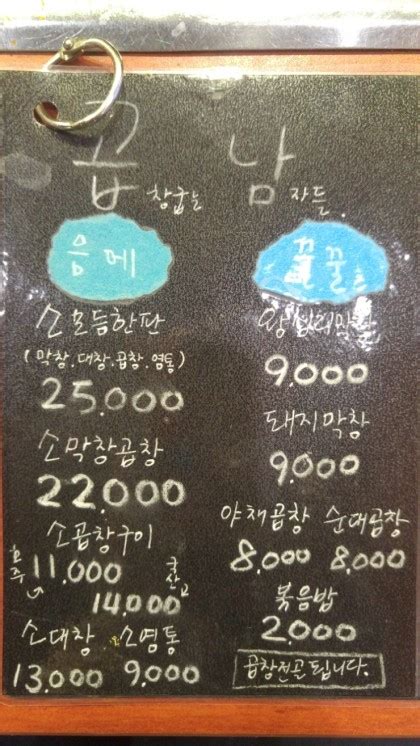 곱 남
창굽는 자들.
음메
소모듬한판
(막창.대창.곱창.염통)
25.000
소막창곱창
22.000
소곱창구이
호주 11.000
국산 14.000
소대창 소염통
13.000 9.000
꿀꿀
9.000
돼지막창
9.000
야채곱창 순대곱창
8.000 8.000
볶음밥
2.000
곱창전골 됩니다.